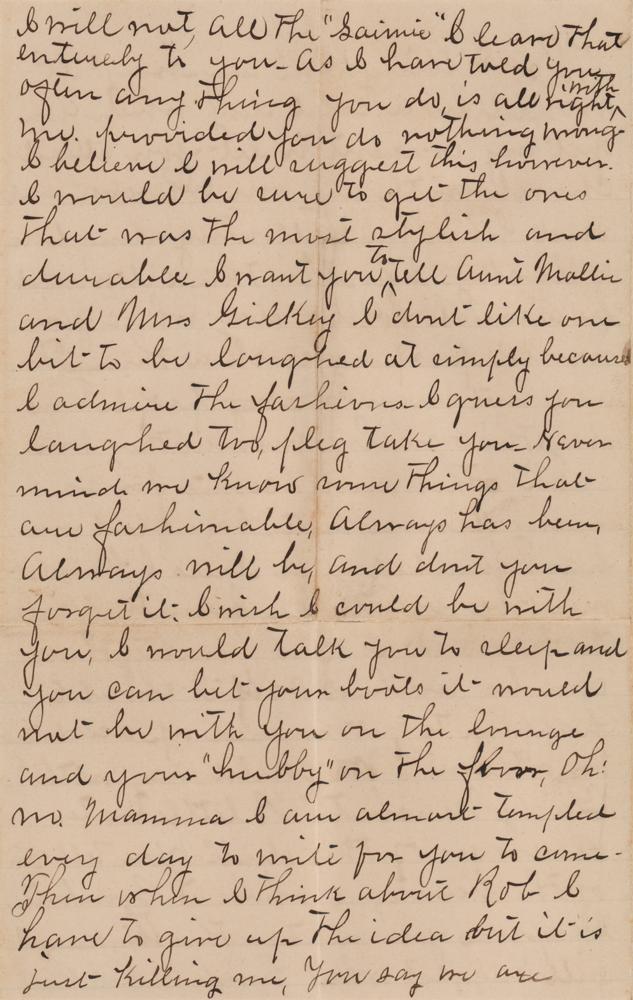 I will not, all the "Saimie" I leave that
entirely to you - As I have told you
often any thing you do, is all right, ^with
me. provided you do nothing wrong -
I believe I will suggest this however.
I would be sure to get the ones
that was the most stylish and
durable I want you ^to tell Aunt Mollie
and Mrs Gilkey I dont like one
bit to be laughed at simply because
I admire the fashions - I guess you
laughed too, pleg take you - Never
mind we know some things that
are fashionable, Always has been,
Always will be, and dont you
forget it. I wish I could be with
you, I would talk you to sleep and
you can bet your boots it would
not be with you on the lounge
and your "hubby" on the floor, Oh!
no. Mamma I am almost tempted
every day to write for you to come -
Then when I think about Rob I
have to give up the idea but it is
just killing me, You say we are